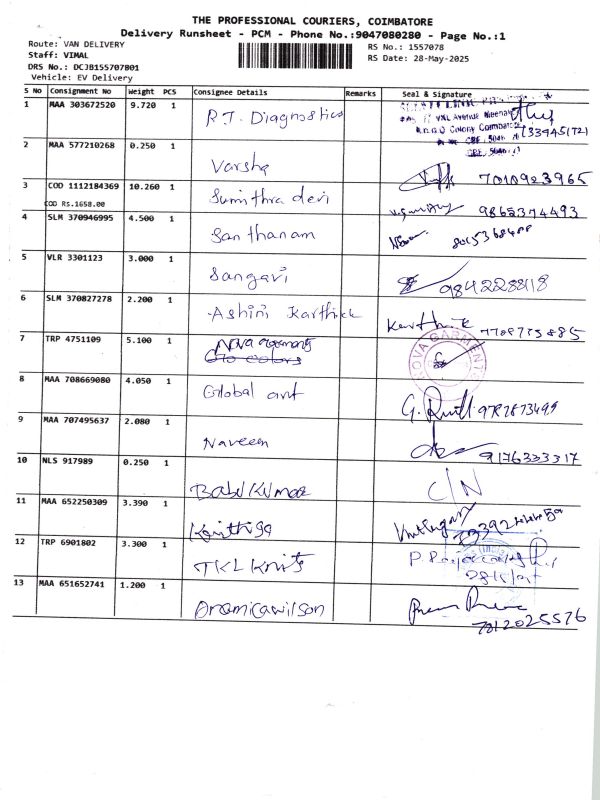 THE PROFESSIONAL COURIERS, COIMBATORE
Delivery Runsheet - PCM - Phone No.:9047080280 - Page No.:1
Route: VAN DELIVERY
Staff: VIMAL
DRS No.: DCJB155707801
Vehicle: EV Delivery
RS No.: 1557078
RS Date: 28-May-2025
S No Consignment No Weight PCS Consignee Details Remarks Seal & Signature
1 MAA 303672520 9.720 1 R.T. Diagnostics
2 MAA 577210268 0.250 1 Varsha 7010923965
3 COD 1112184369 10.260 1 Sumithra devi 9865374493
COD Rs.1658.00
4 SLM 370946995 4.500 1 Santhanam
5 VLR 3301123 3.000 1 Sangavi 9842228818
6 SLM 370827278 2.200 1 Ashini Karthick Karthik
7 TRP 4751109 5.100 1 Nova garments NOVA GARMENT
8 MAA 708669080 4.050 1 Global art
9 MAA 707495637 2.080 1 Naveen 9176333317
10 NLS 917989 0.250 1 Babu Kumar C/N
11 MAA 652250309 3.390 1 Kirithiga
12 TRP 6901802 3.300 1 TKL Knits
13 MAA 651652741 1.200 1 7812025576